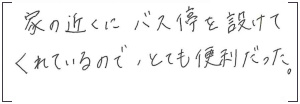 家の近くにバス停を設けて
くれているので、とても便利だった。